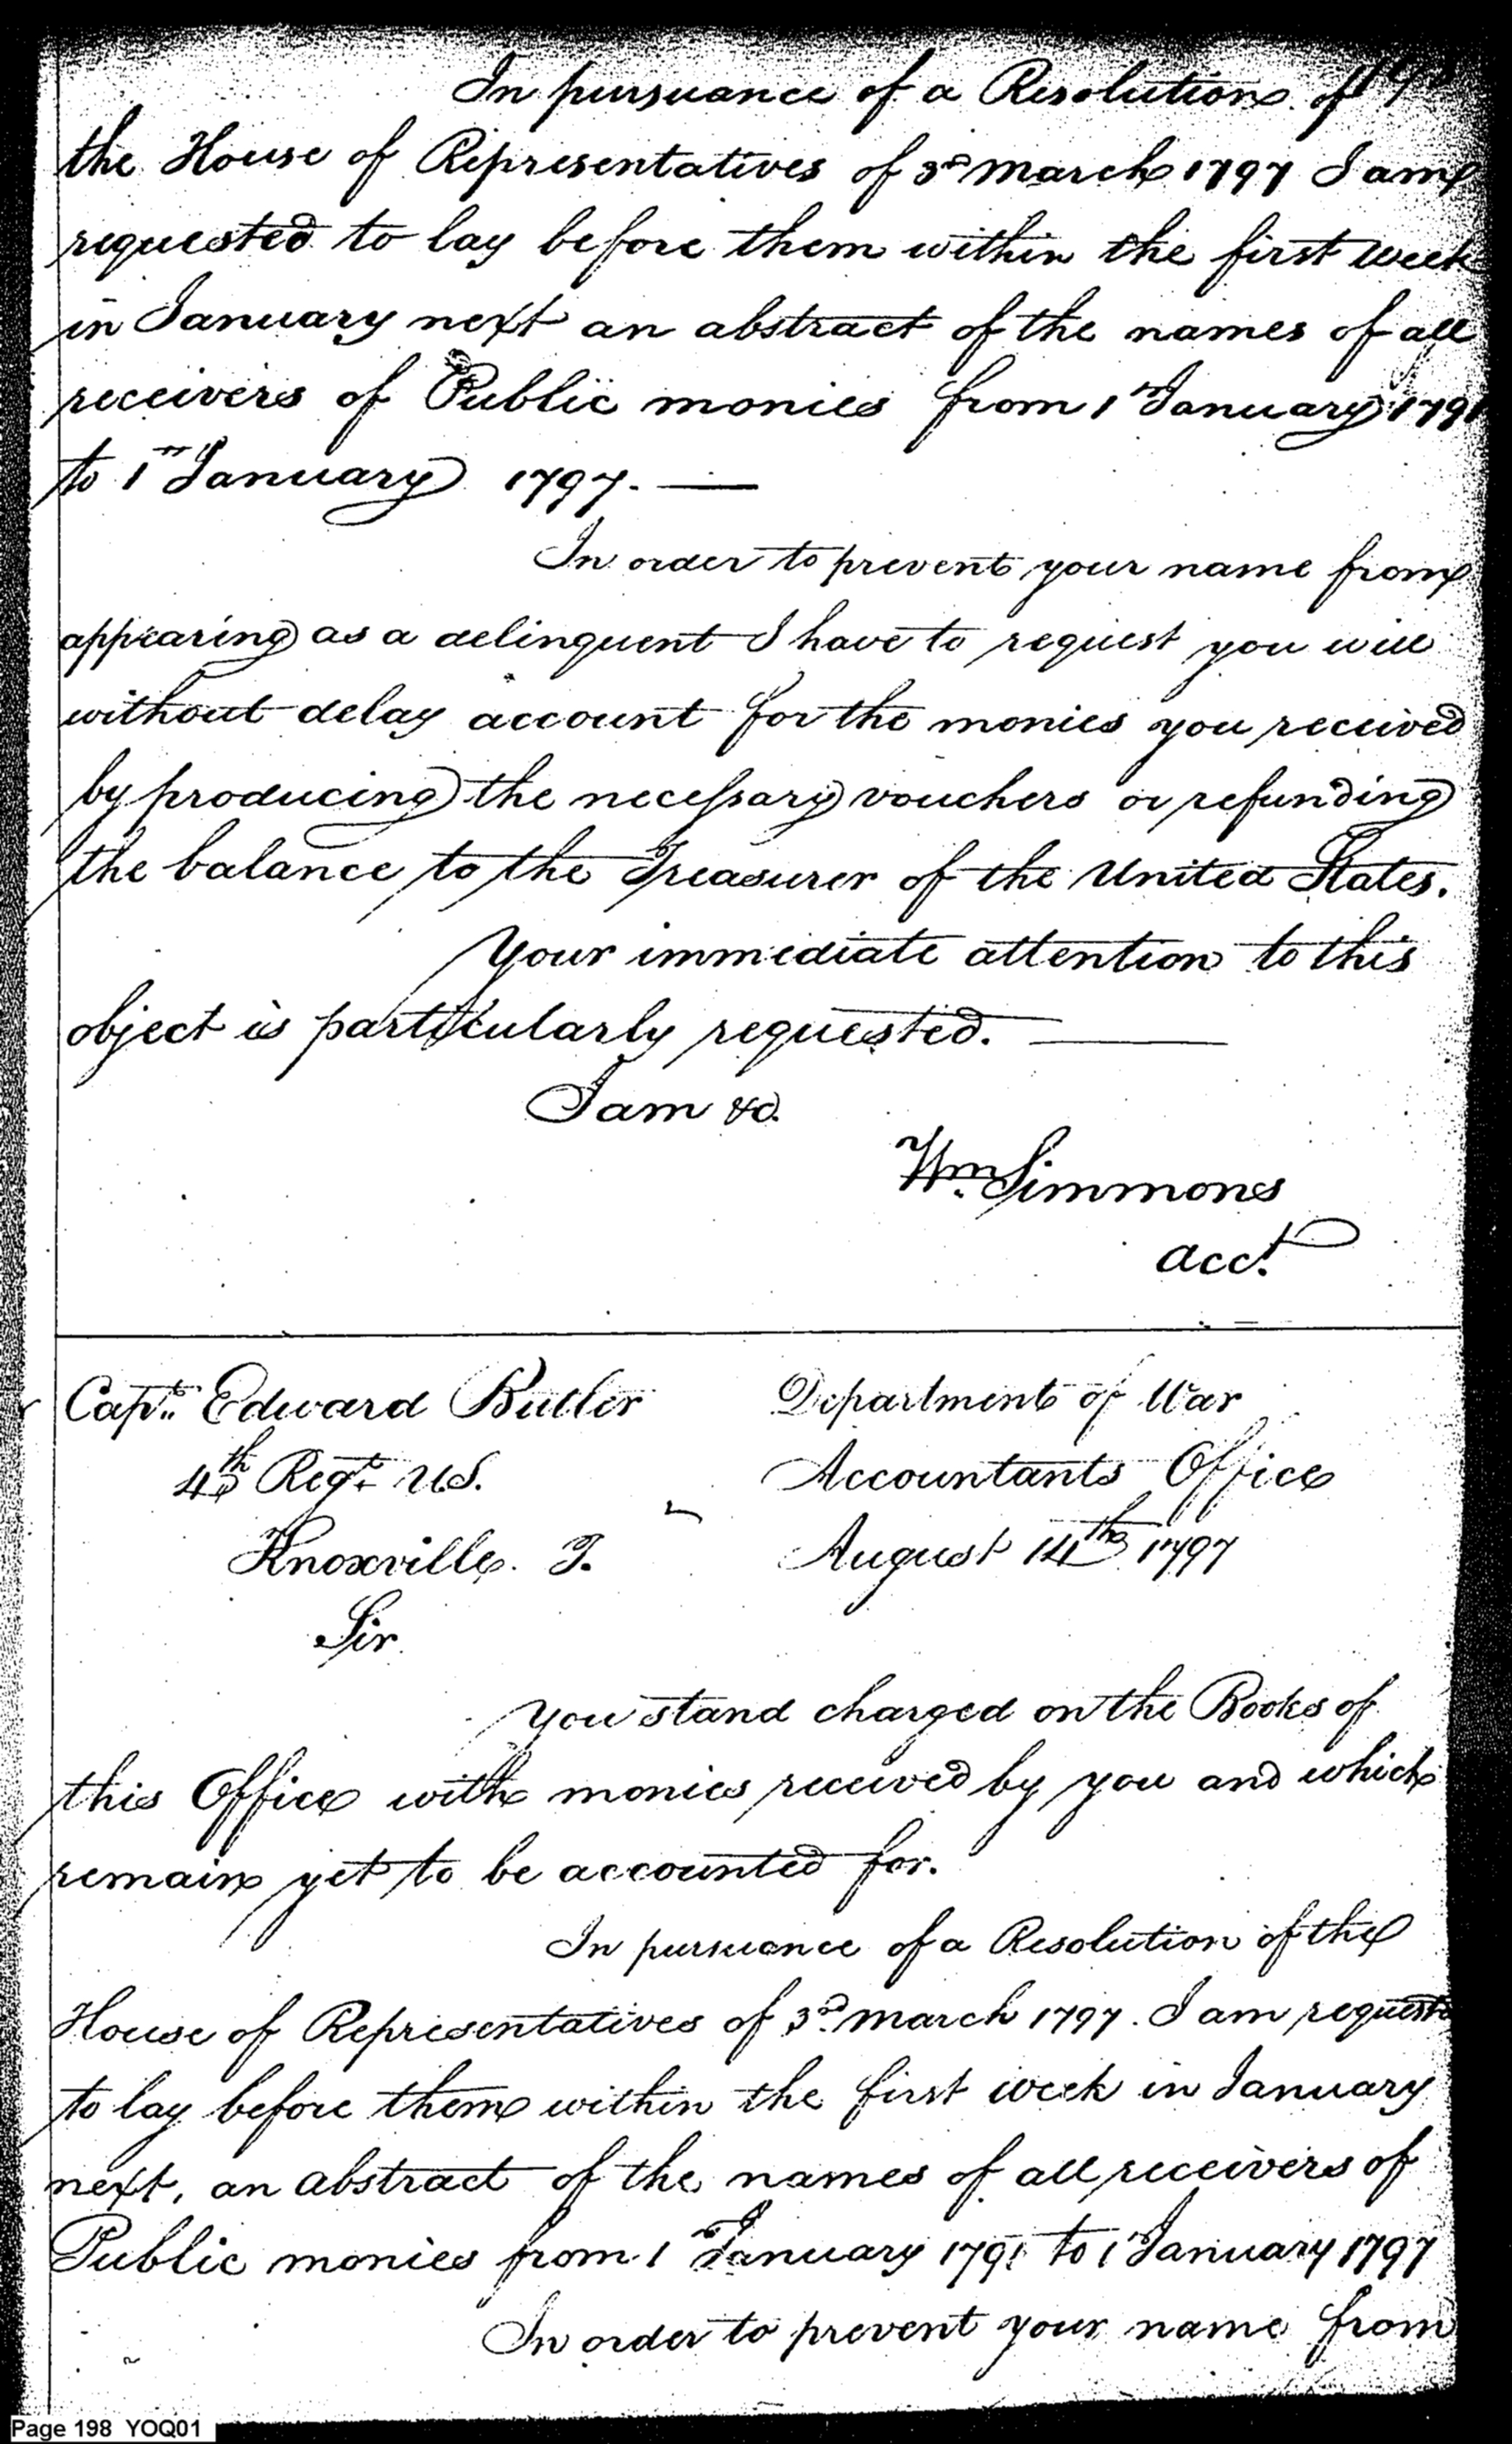 In pursuance of a Resolution of
the House of Representatives of 3d March 1797 I am
requested to lay before them within the first week
in January next an abstract of the names of all
receivers of Public monies from 1st January 1791
to 1st January 1797. —
In order to prevent your name from
appearing as a delinquent I have to request you will
without delay account for the monies you received
by producing the necessary vouchers or refunding
the balance to the Treasurer of the United States.
Your immediate attention to this
object is particularly requested. —
I am &c.
Wm. Simmons
acct.
Capt. Edward Butler
4th Regt. U.S.
Knoxville. T.
Department of War
Accountants Office
August 14th 1797
Sir
You stand charged on the Books of
this Office with monies received by you and which
remain yet to be accounted for.
In pursuance of a Resolution of the
House of Representatives of 3d. March 1797. I am requeste
to lay before them within the first week in January
next, an abstract of the names of all receivers of
Public monies from 1 January 1791 to 1 January 1797
In order to prevent your name from
Page 198 YOQ01